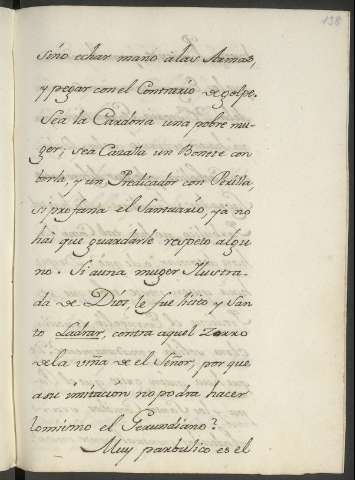 138
sino echar mano à las Armas,
y pegar con el Contrario de golpe.
Sea la Cardona una pobre mu-
ger; sea Cazalla un Bonete con
borla, y un Predicador con Perilla,
si profana el Santuario, ya no
hai que guardarle respeto algu
no. Si àuna muger Ilustra-
da de Dios, le fue licito y San
to Ladrar, contra aquel Zorro
dela viña de el Señor, por que
asu imitacion no podra hacer
lo mismo el Gerundiano?
Muy parbulico es el